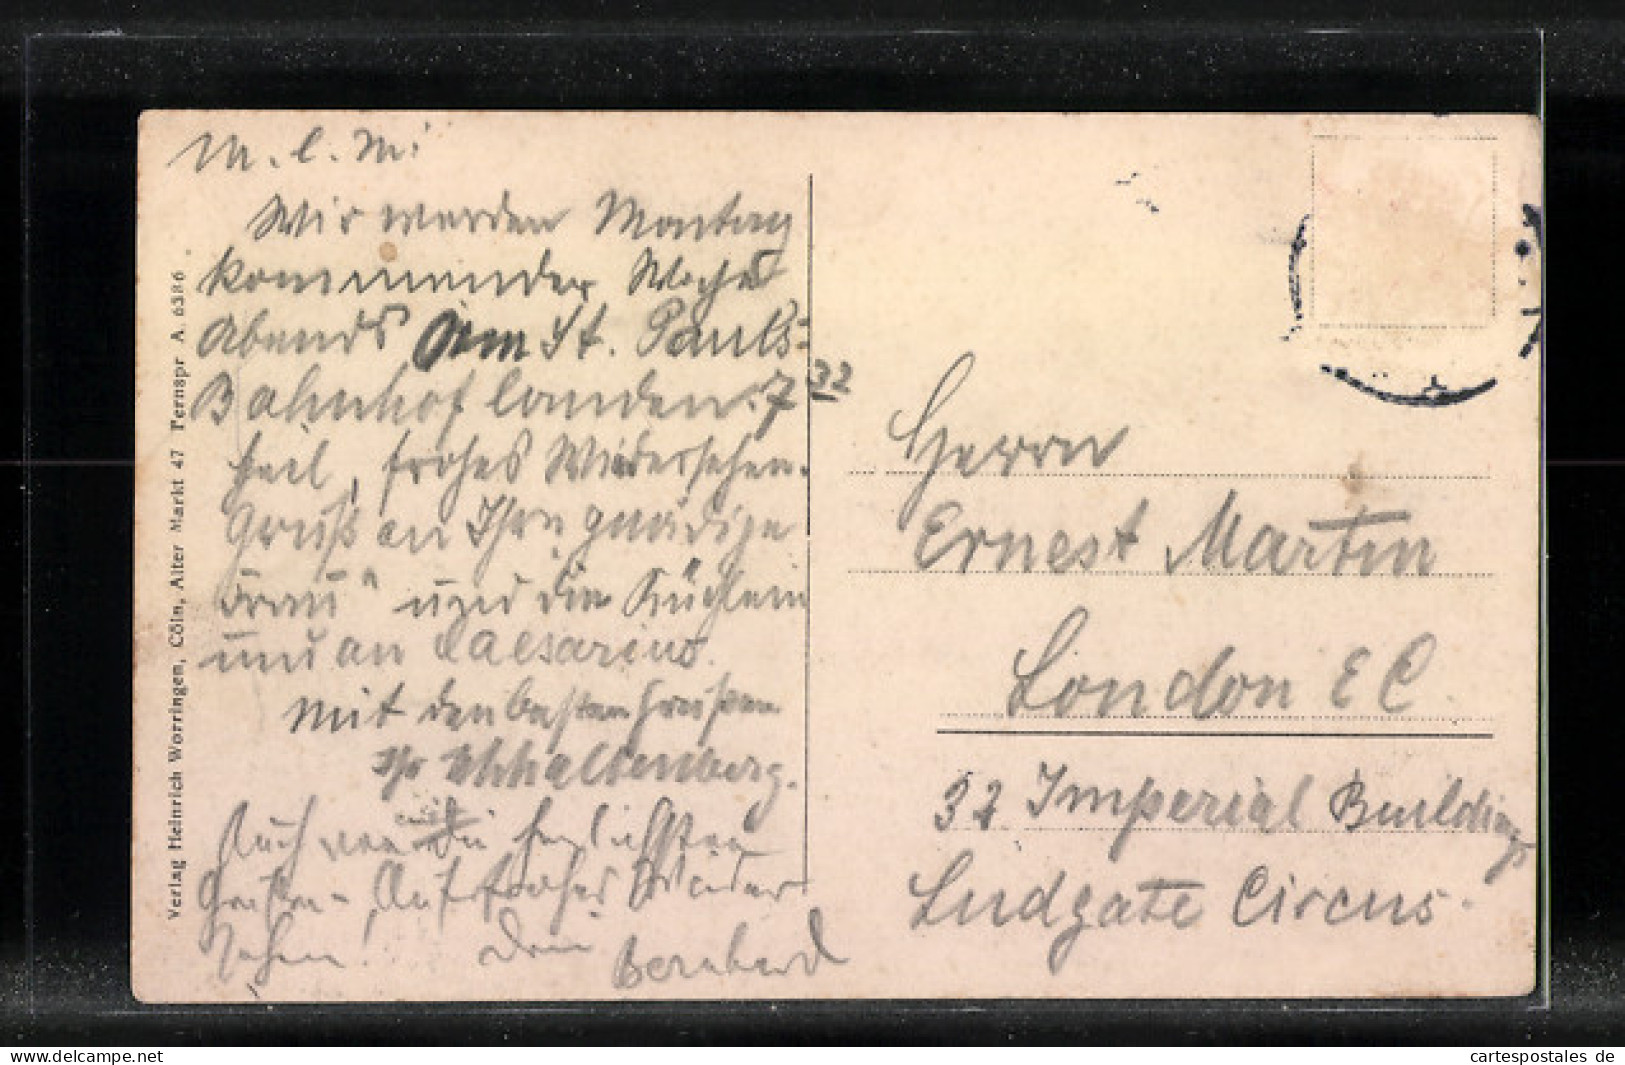 M. l. M!
Wir werden Montag
kommender Woche
Abends am St. Pauls-
Bahnhof landen. 7 32
Heil, frohes Wiedersehen.
Gruß an Ihre gnädige
Frau" und die Küchlein
und an Caesarino.
Mit den besten Grüßen
Ihr
Auch von mir die herzlichsten
Grüße - Auf frohes Wieder
sehen! Dein Bernhard
Herrn
Ernest Martin
London E C.
32 Imperial Buildings
Ludgate Circus.
Verlag Heinrich Worringen, Cöln, Alter Markt 47 Fernspr A. 6386
cartespostales de